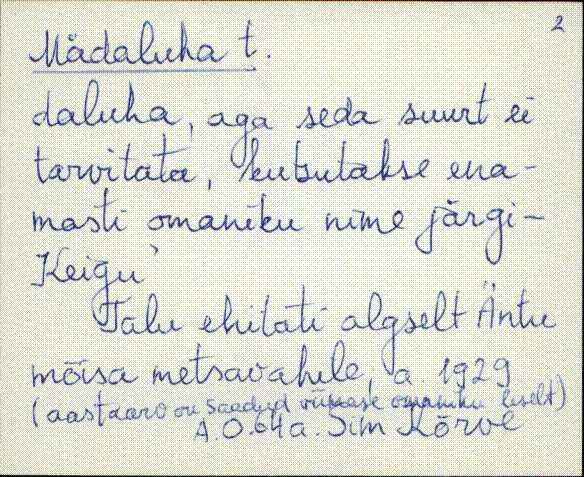 2
Mädaluha t.
daluha, aga seda suurt ei
tarvitata, kutsutakse ena-
masti omaniku nime järgi-
Keigu'
Talu ehitati algselt Äntu
mõisa metsavahile, a. 1929
(aastaarv on saadud viimase omaniku leselt)
A.O. 64a. Sim Kõrve